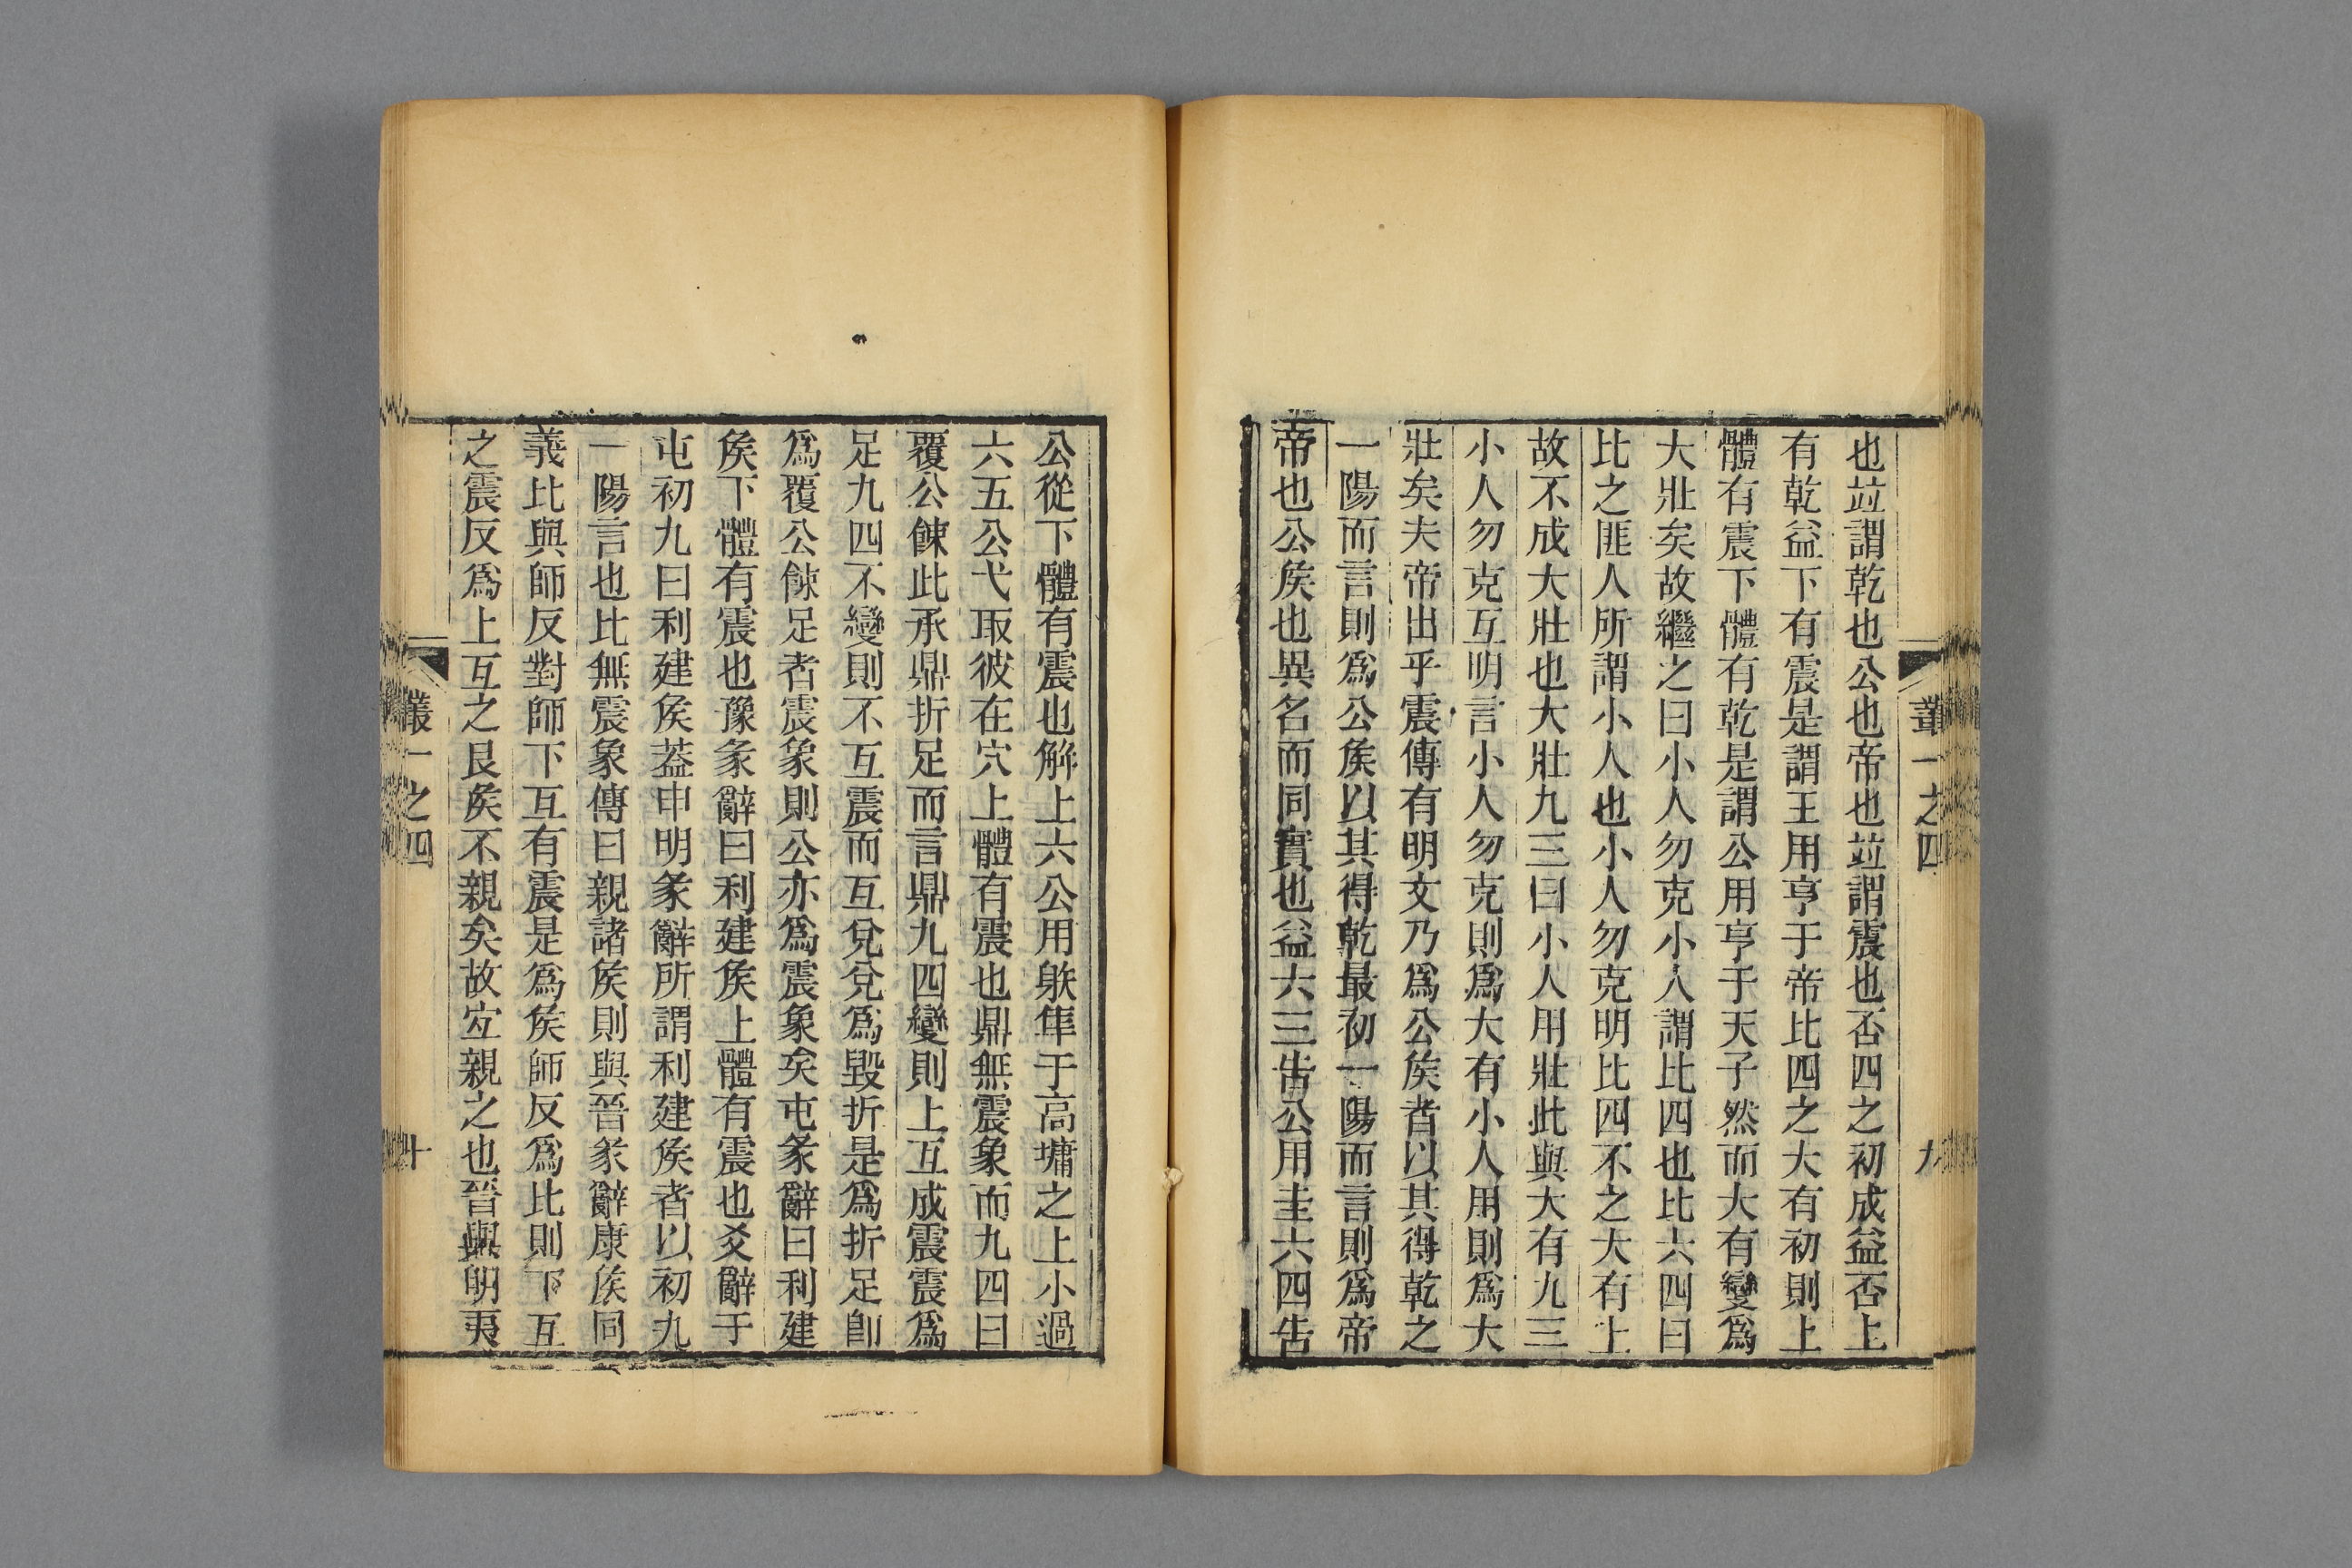 叢一之四
九
也竝謂乾也公也帝也竝謂震也否四之初成益否上
有乾益下有震是謂王用亨于帝比四之大有初則上
體有震下體有乾是謂公用亨于天子然而大有變爲
大壯矣故繼之曰小人勿克小人謂比四也比六四曰
比之匪人所謂小人也小人勿克明比四不之大有上
故不成大壯也大壯九三曰小人用壯此與大有九三
小人勿克互明言小人勿克則爲大有小人用則爲大
壯矣夫帝出乎震傳有明文乃爲公矦者以其得乾之
一陽而言則爲公矦以其得乾最初一陽而言則爲帝
帝也公矦也異名而同實也益六三告公用圭六四告
公從下體有震也解上六公用躲隼于高墉之上小過
六五公弋取彼在穴上體有震也鼎無震象而九四曰
覆公餗此承鼎折足而言鼎九四變則上互成震震爲
足九四不變則不互震而互兌兌爲毀折是爲折足卽
爲覆公餗足者震象則公亦爲震象矣屯彖辭曰利建
矦下體有震也豫彖辭曰利建矦上體有震也爻辭于
屯初九曰利建矦葢申明彖辭所謂利建矦者以初九
一陽言也比無震象傳曰親諸矦則與晉彖辭康矦同
義比與師反對師下互有震是爲矦師反爲比則下互
之震反爲上互之艮矦不親矣故宐親之也晉與明夷
叢一之四
十